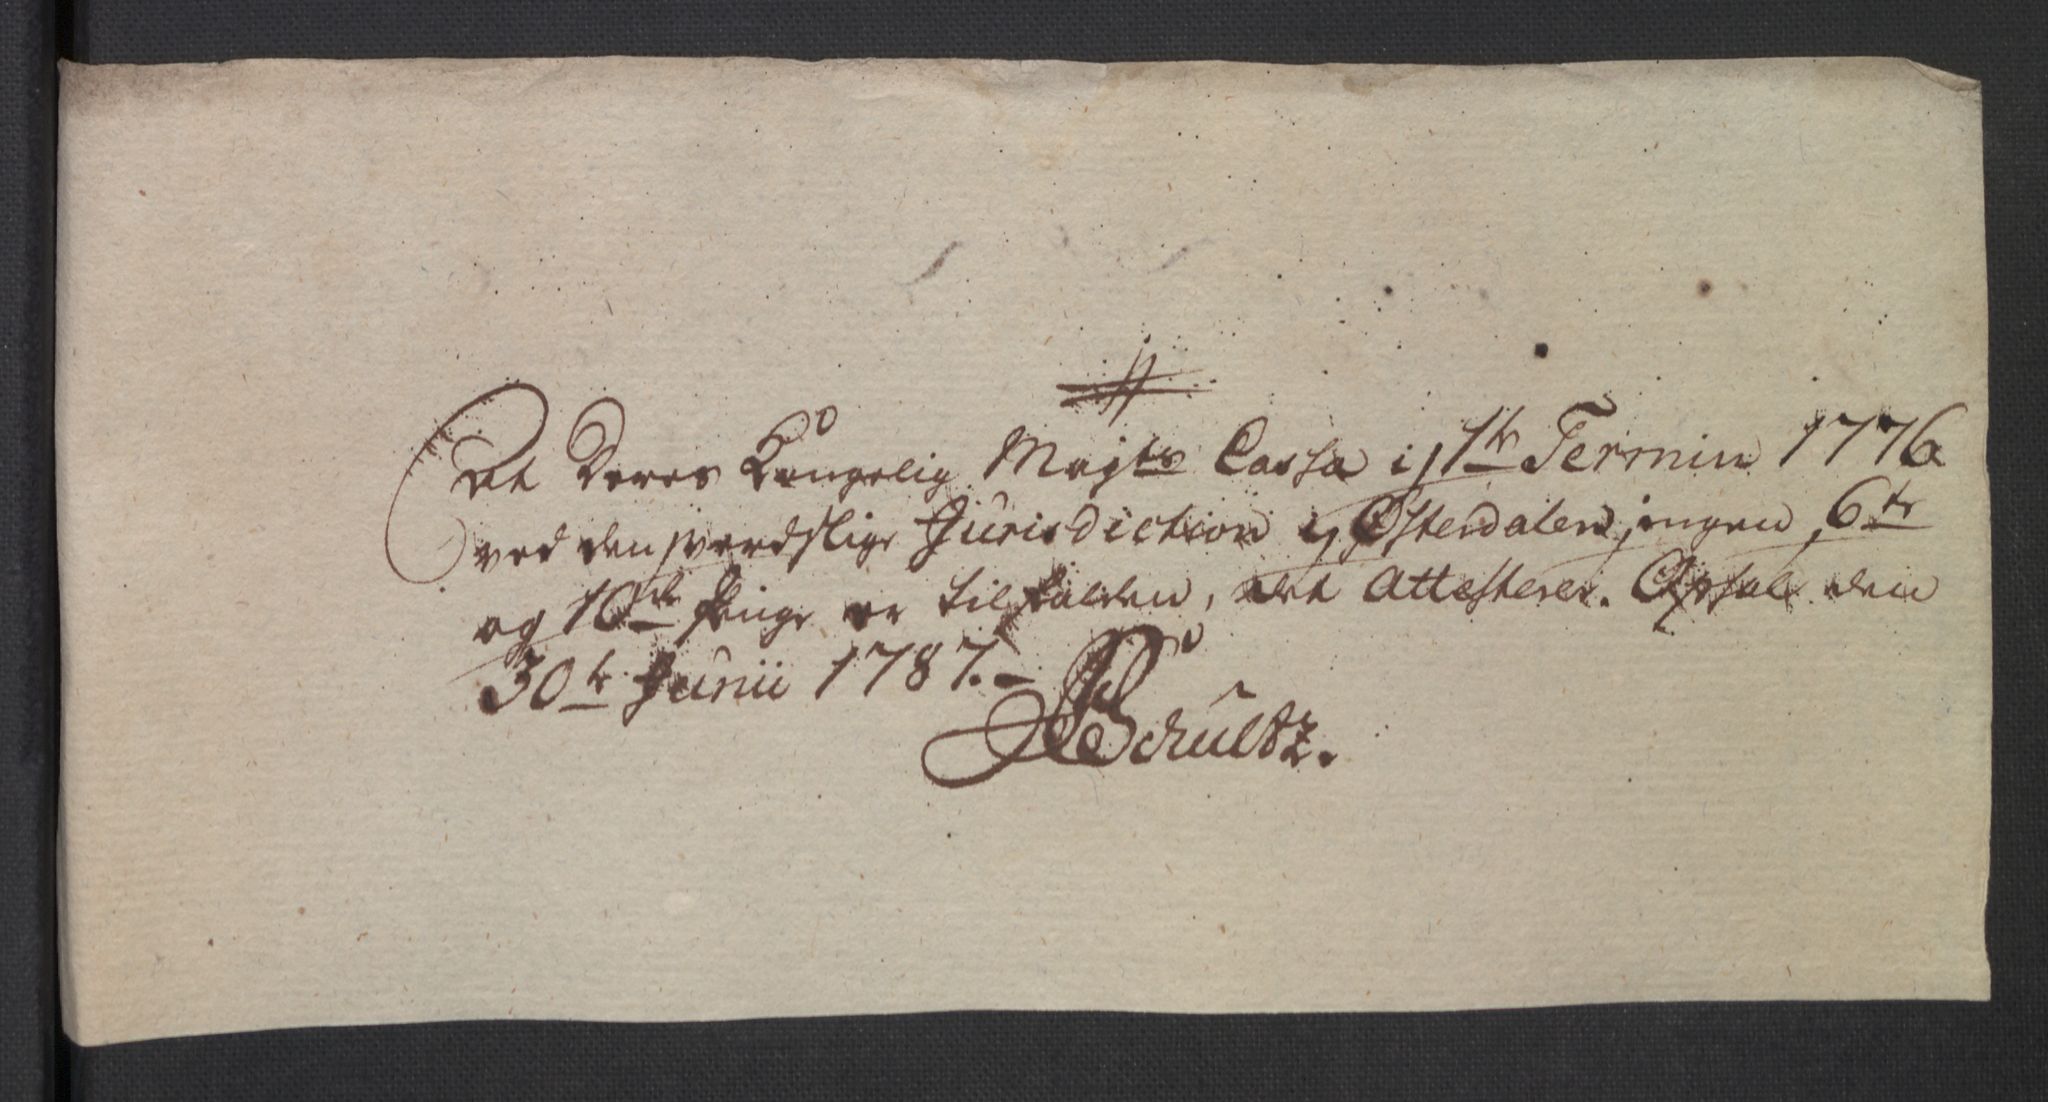 At Deres Kongelig Mayts Cassa i 1ste Termin 1776
ved den verdslige Jurisdiction i Østerdalen ingen 6te
og 10de Penge er tilfalden, det Attesterer. den
30te Junii 1787.
Schultz.